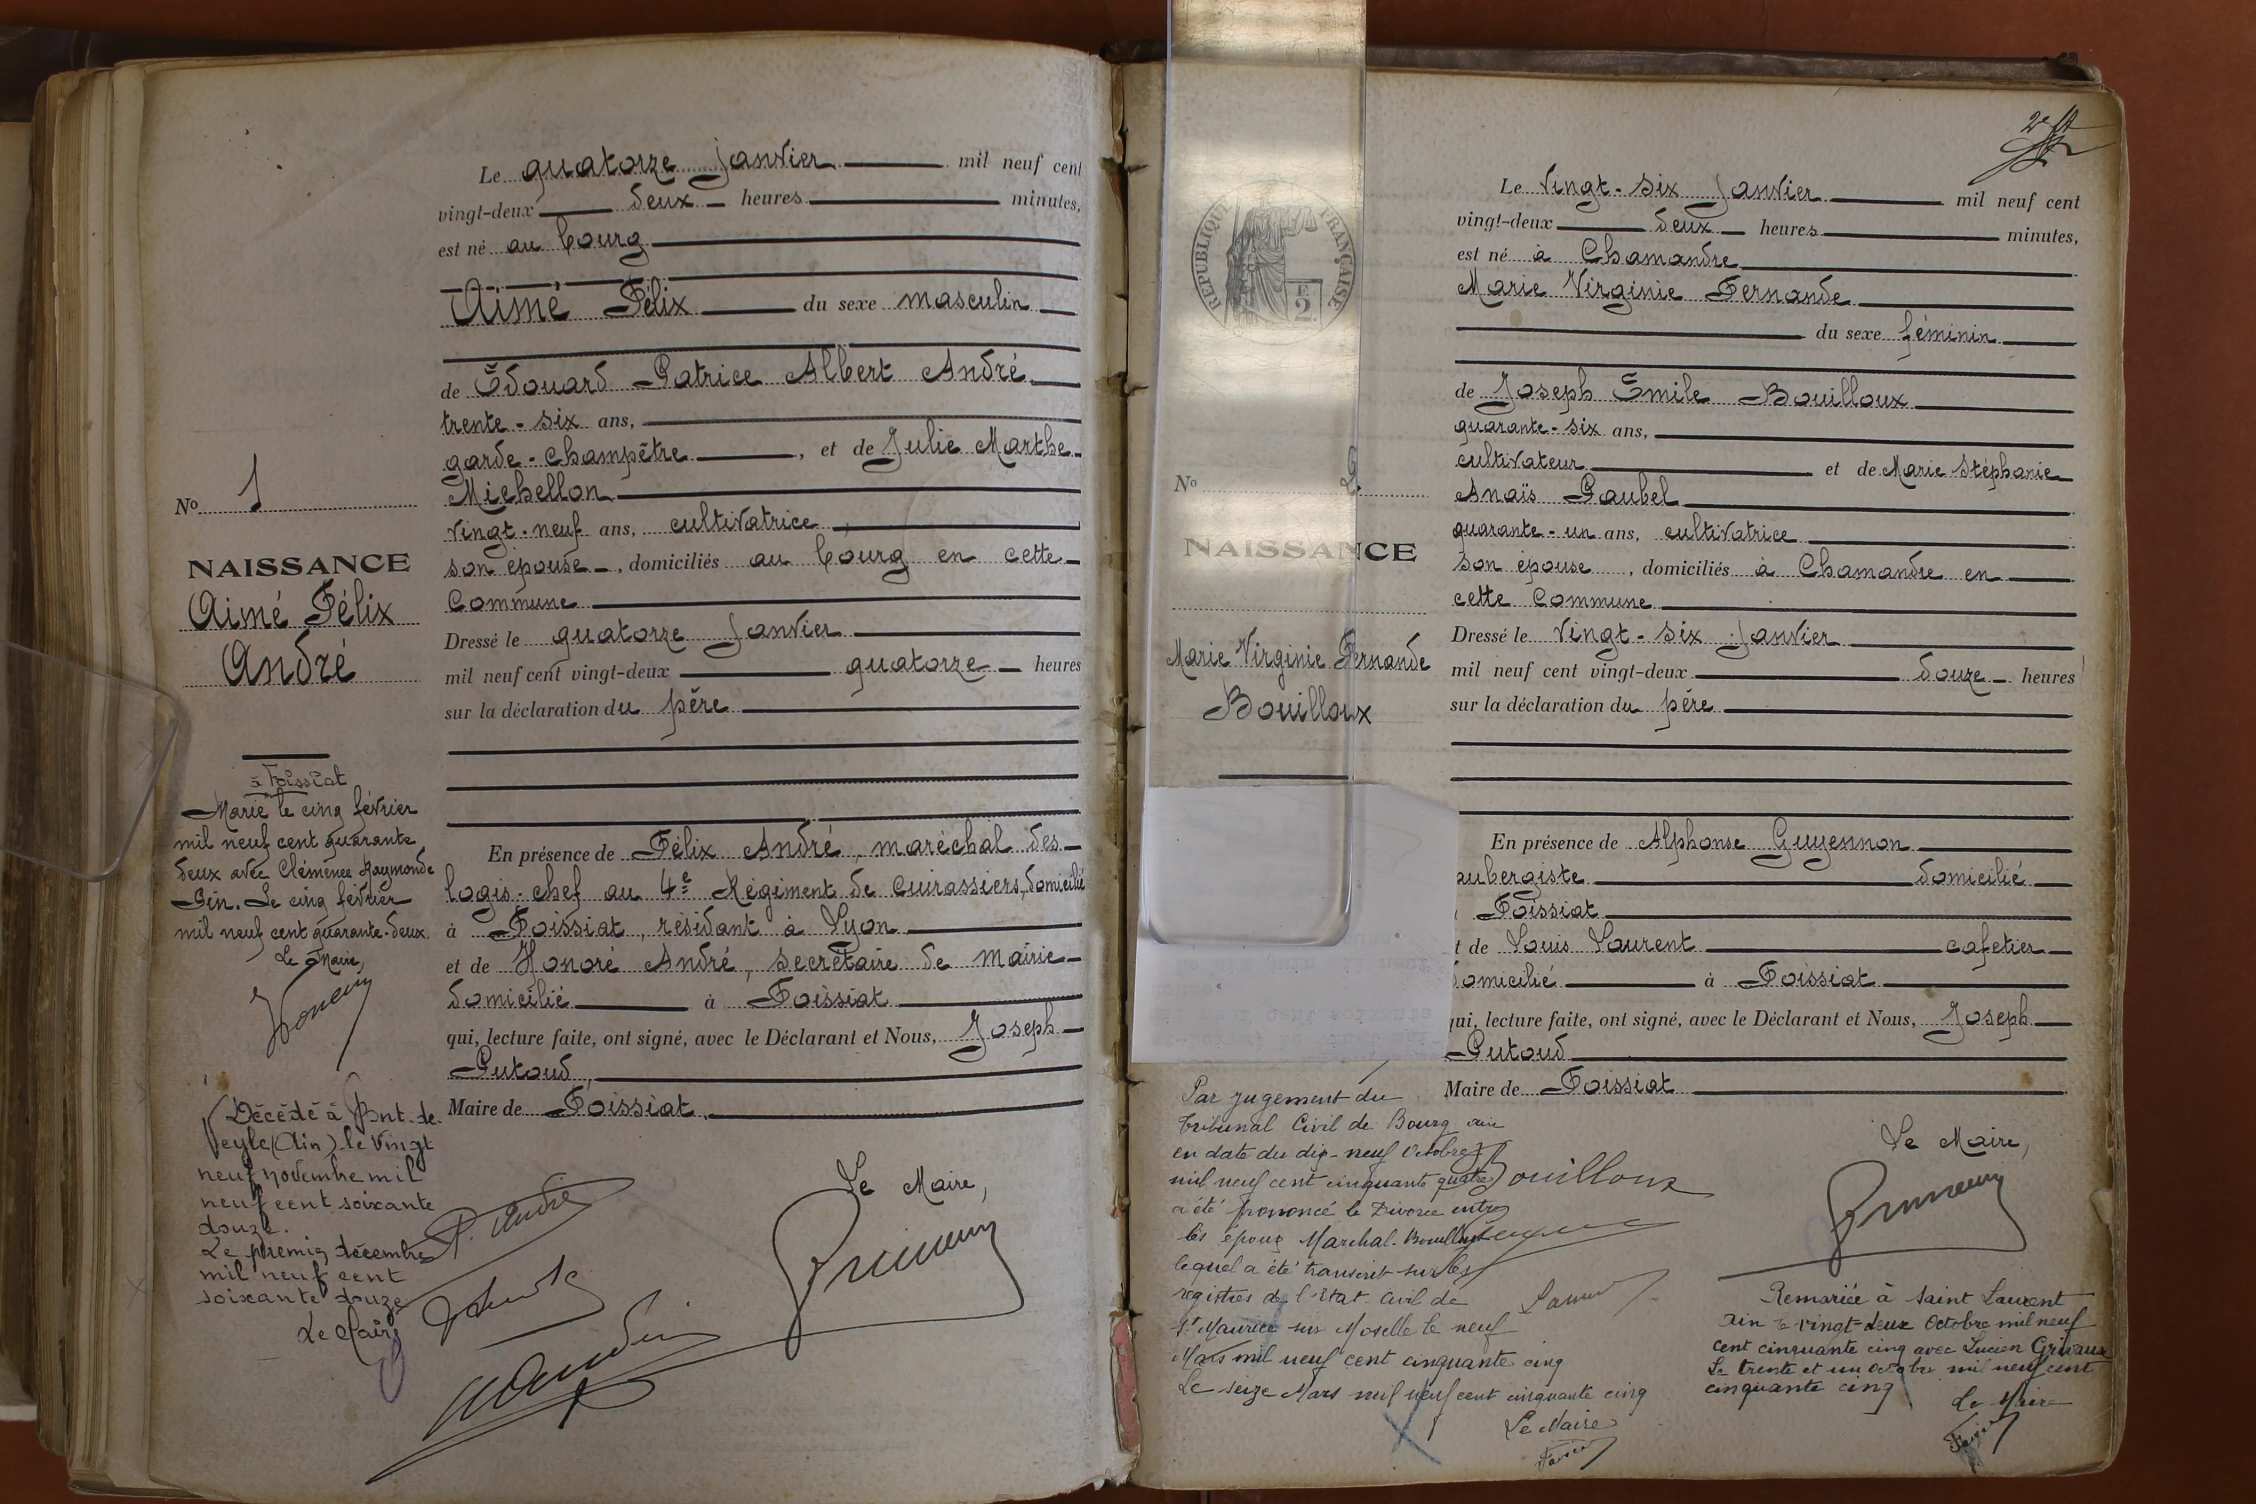 Le quatorze Janvier mil neuf cent
vingt-deux deux heures minutes,
est né au bourg
Aimé Félix du sexe masculin
de Édouard Patrice Albert André
trente-six ans,
garde-champêtre, et de Julie Marthe
Michellon
vingt-neuf ans, cultivatrice,
son épouse, domiciliés au bourg en cette
Commune
Dressé le quatorze Janvier
mil neuf cent vingt-deux quatorze heures
sur la déclaration du père
En présence de Félix André, maréchal des
logis-chef au 4e Régiment de Cuirassiers, domicilié
à Foissiat, résidant à Lyon
et de Honoré André, secrétaire de mairie
domicilié à Foissiat
qui, lecture faite, ont signé, avec le Déclarant et Nous, Joseph
Putoud,
Maire de Foissiat
Le Maire,
No 1
NAISSANCE
Aimé Félix
André
à Foissiat
Marié le cinq février
mil neuf cent quarante
deux avec Clémence Raymonde
Gin. Le cinq février
mil neuf cent quarante-deux
Le Maire,
Décédé à Pont-de-
Veyle (Ain) le vingt
neuf novembre mil
neuf cent soixante
douze.
Le premier décembre
mil neuf cent
soixante douze
Le Maire
P. André
2e
REPUBLIQUE FRANÇAISE
2
Le vingt-six Janvier mil neuf cent
vingt-deux deux heures minutes,
est né à Chamandre
Marie Virginie Fernande
du sexe féminin
de Joseph Emile Bouilloux
quarante-six ans,
cultivateur et de Marie Stéphanie
Anaïs Paubel
quarante-un ans, cultivatrice
son épouse, domiciliés à Chamandre en
cette Commune
Dressé le vingt-six Janvier
mil neuf cent vingt-deux douze heures
sur la déclaration du père
En présence de Alphonse Guyennon
aubergiste domicilié
Foissiat
t de Louis Laurent cafetier
domicilié à Foissiat
qui, lecture faite, ont signé, avec le Déclarant et Nous, Joseph
Putoud
Maire de Foissiat
Le Maire,
No 2
NAISSANCE
Marie Virginie Fernande
Bouilloux
Par jugement du
tribunal Civil de Bourg Ain
en date du dix-neuf Octobre
mil neuf cent cinquante quatre
a été prononcé le Divorce entre
les époux Marchal-Bouilloux
lequel a été transcrit sur les
registres de l'Etat-Civil de
St Maurice sur Moselle le neuf
Mars mil neuf cent cinquante cinq
Le seize Mars mil neuf cent cinquante cinq
Le Maire
Bouilloux
Remariée à Saint Laurent
Ain le vingt-deux Octobre mil neuf
cent cinquante cinq avec Lucien Grivaux
Le trente et un Octobre mil neuf cent
cinquante cinq
Le Maire